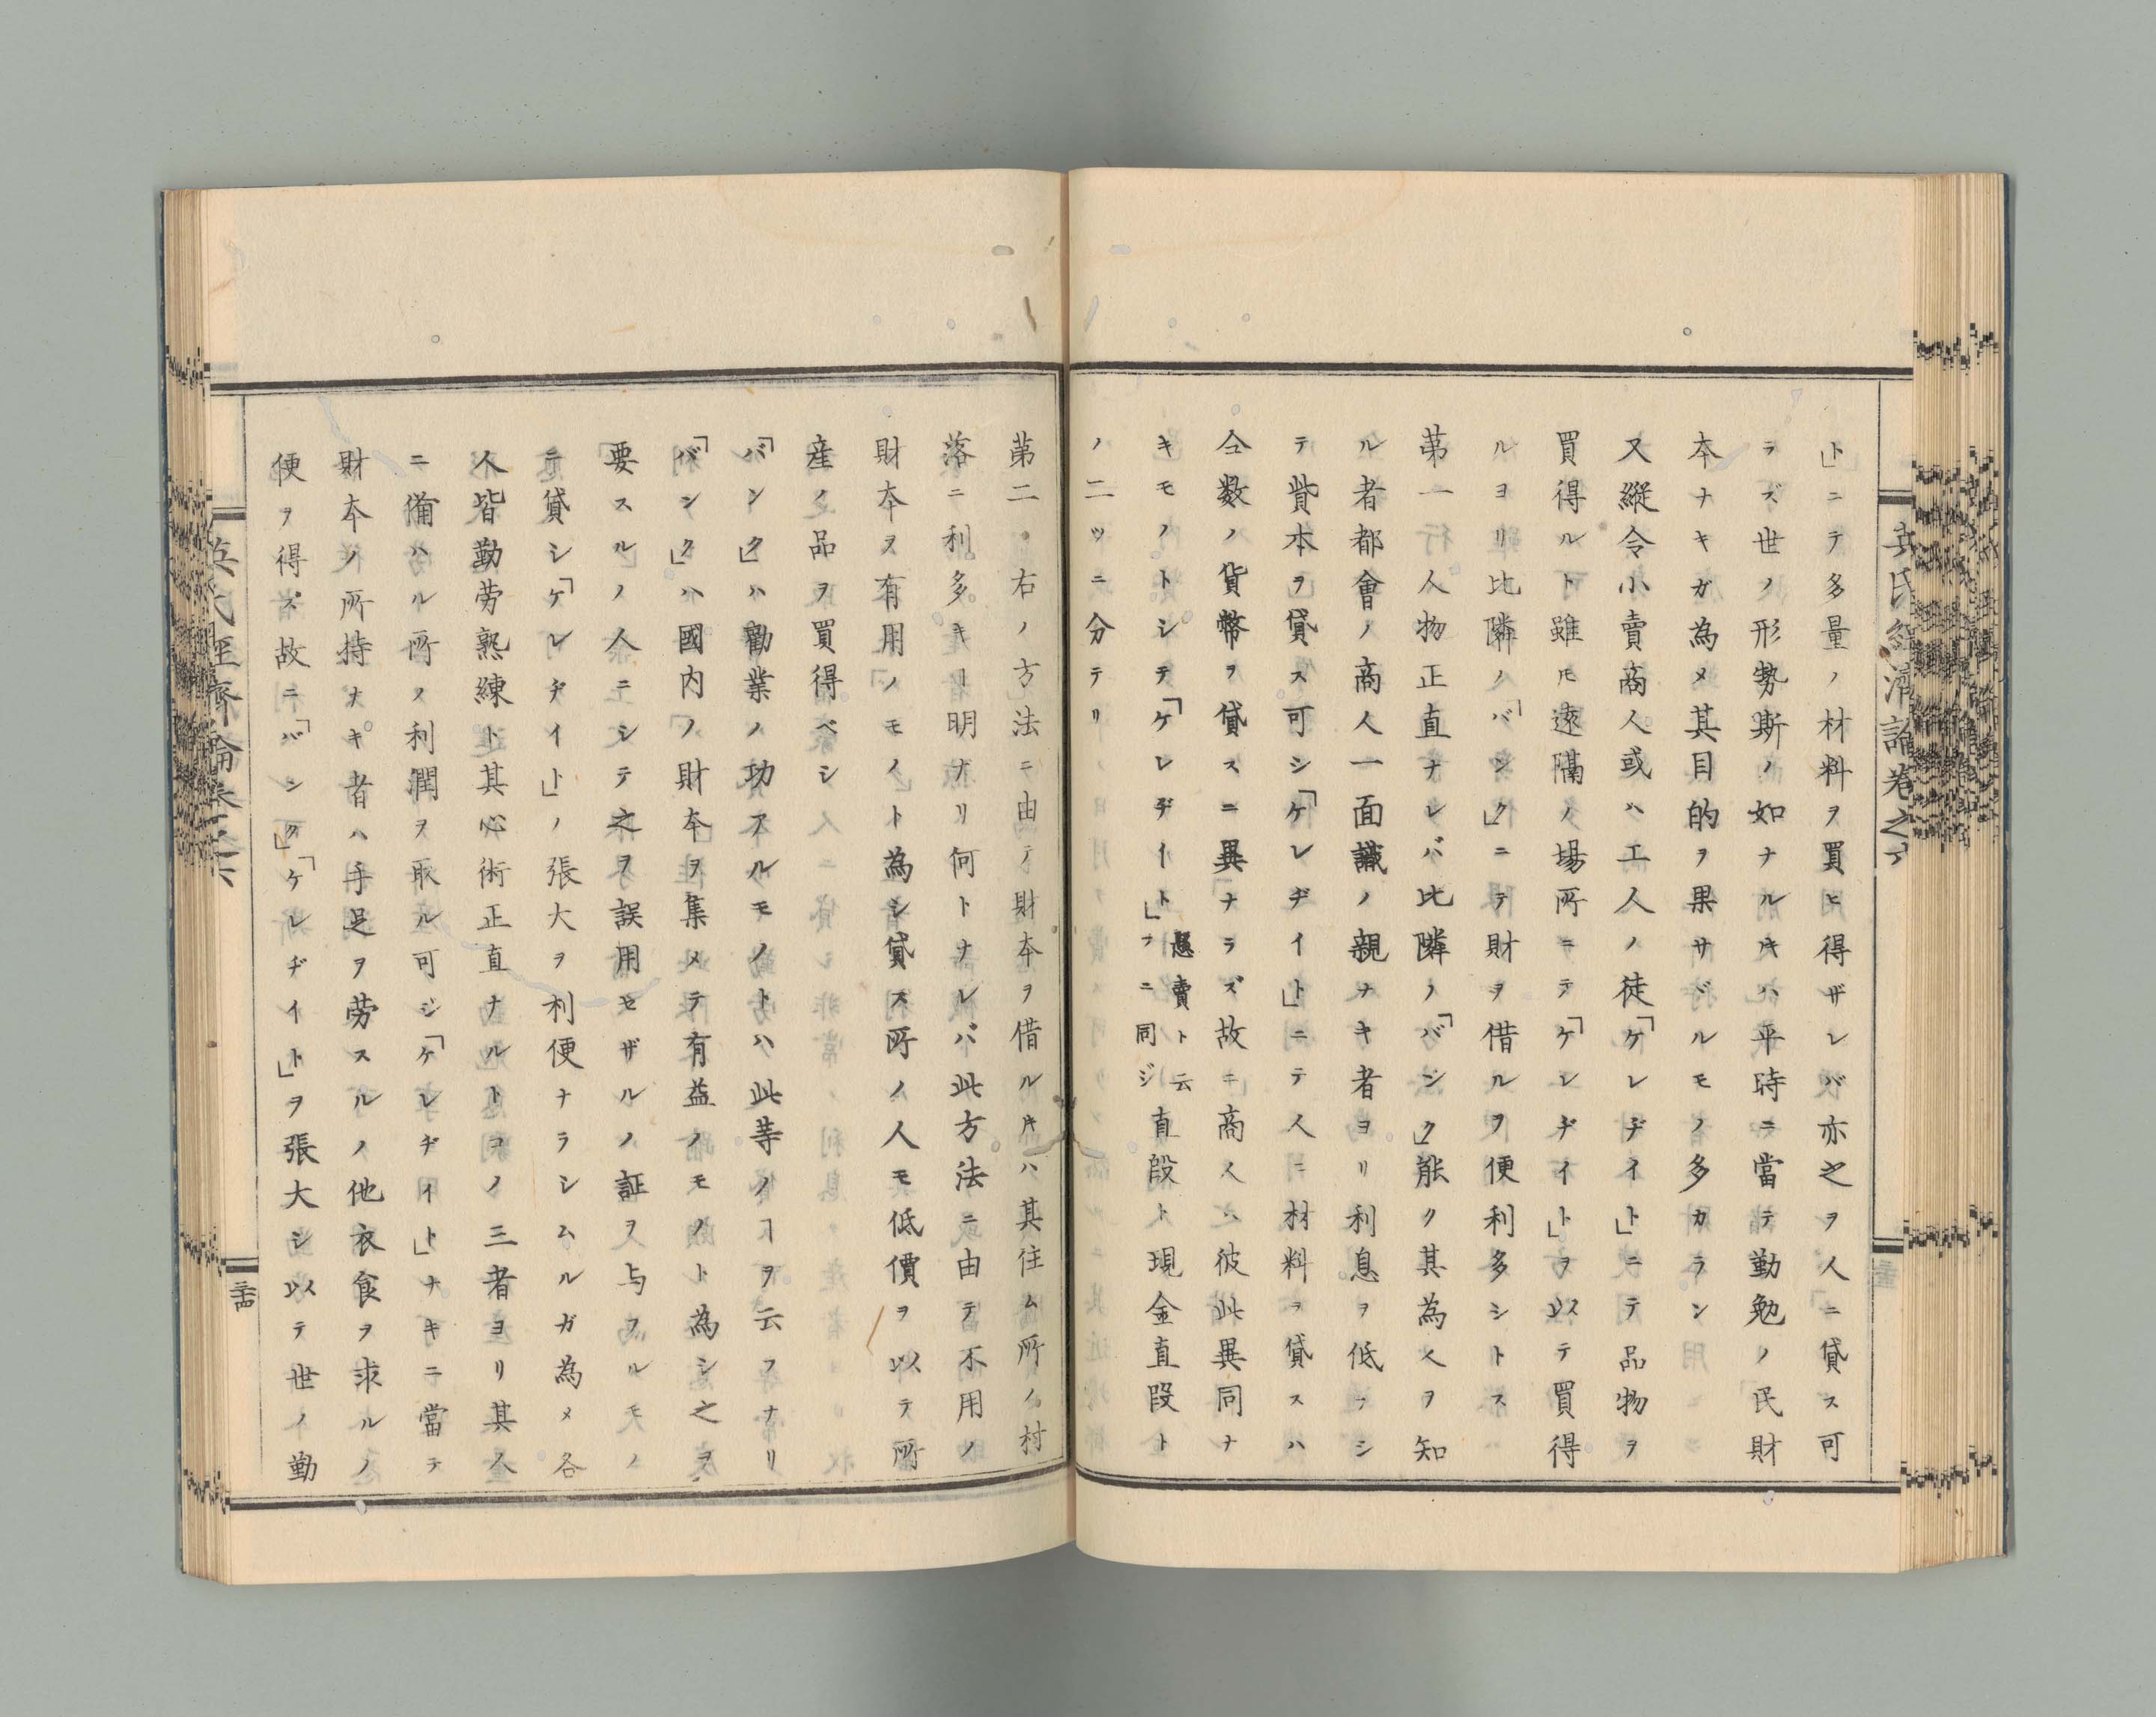 ト」ニテ多量ノ材料ヲ買ヒ得ザレバ亦之ヲ人ニ貸ス可
ラズ世ノ形勢斯ノ如ナルキハ平時ニ當テ勤勉ノ民財
本ナキガ為メ其目的ヲ果サヾルモノ多カラン
又縦令小賣商人或ハ工人ノ徒「ケレヂイト」ニテ品物ヲ
買得ルト雖モ遠隔ノ場所ニテ「ケレヂイト」ヲ以テ買得
ルヨリ比隣ノ「バンク」ニテ財ヲ借ルヲ便利多シトス
第一行人物正直ナレバ比隣ノ「バンク」能ク其為人ヲ知
ル者都會ノ商人一面識ノ親ナキ者ヨリ利息ヲ低フシ
テ貲本ヲ貸ス可シ「ケレヂイト」ニテ人ニ材料ヲ貸スハ
仝数ノ貨幣ヲ貸スニ異ナラズ故ニ商人ハ彼此異同ナ
キモノトシテ「ケレヂイート」懸賣ト云フニ同ジ直段ト現金直段ト
ノ二ツニ分テリ
第二右ノ方法ニ由テ財本ヲ借ルキハ其住ム所ノ村
落ニ利多キヿ明ナリ何トナレバ此方法ニ由テ不用ノ
財本ヲ有用ノモノト為シ貸ス所ノ人モ低價ヲ以テ所
産ノ品ヲ買得ベシ
「バンク」ハ勸業ノ功アルモノトハ此等ノヿヲ云フナリ
「バンク」ハ國内ノ財本ヲ集メテ有益ノモノト為シ之ヲ
要スルノ人ニシテ之ヲ誤用セザルノ証ヲ与フルモノ
ニ貸シ「ケレヂイト」ノ張大ヲ利便ナラシムルガ為メ各
人皆勤労熟練ト其心術正直ナルトヿノ三者ヨリ其人
ニ備ハル所ノ利潤ヲ取ル可シ「ケレヂイト」ナキニ當テ
財本ノ所持ナキ者ハ手足ヲ労スルノ他衣食ヲ求ルノ
便ヲ得ズ故ニ「バンク」「ケレヂイト」ヲ張大シ以テ世ノ勤
英氏経済論巻之六